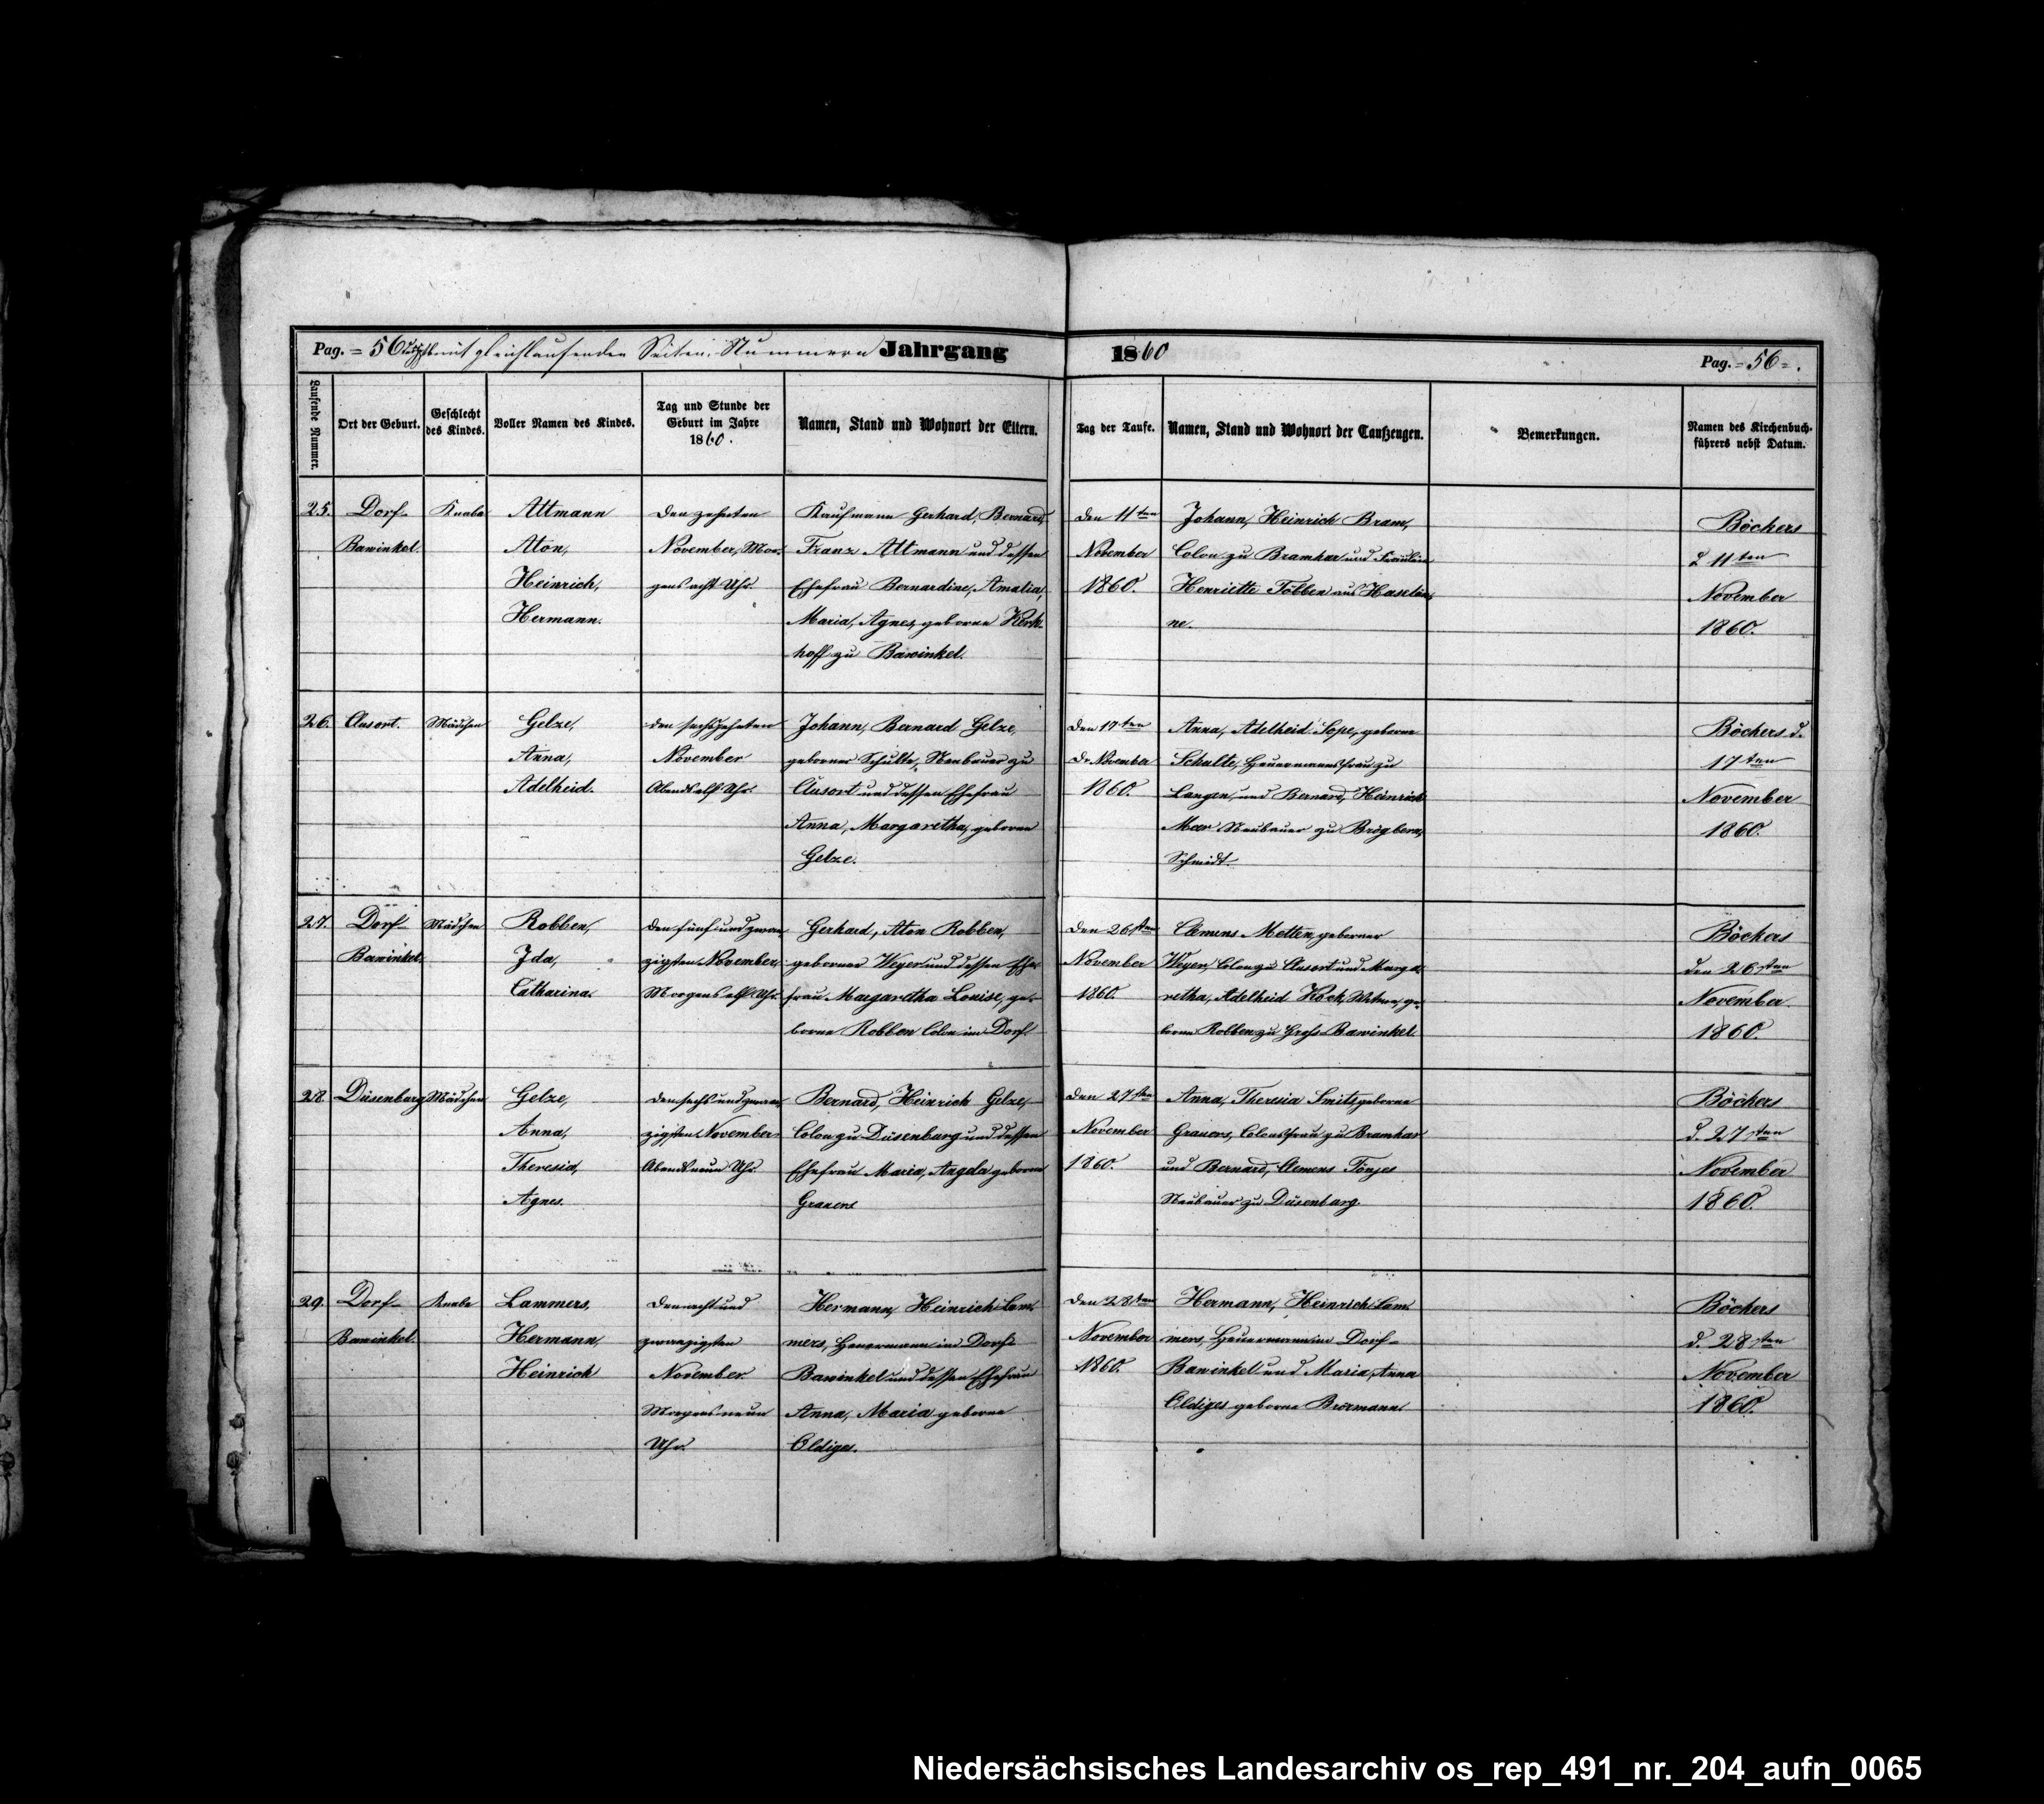 Pag. = 56 mit gleichlaufenden Seiten-Nummern Jahrgang 1860 Pag. = 56 = .
Laufende Nummer.
Ort der Geburt.
Geschlecht des Kindes.
Voller Namen des Kindes.
Tag und Stunde der Geburt im Jahre 1860.
Namen, Stand und Wohnort der Eltern.
Tag der Taufe.
Namen, Stand und Wohnort der Taufzeugen.
Bemerkungen.
Namen des Kirchenbuch-
führers nebst Datum.
25.
Dorf-
Bawinkel.
Knabe
Altmann
Aton,
Heinrich,
Hermann.
den zehnten
November, Mor-
gens acht Uhr.
Kaufmann Gerhard, Bernard,
Franz Altmann und dessen
Ehefrau Bernardine, Amalia,
Maria, Agnes, geborne Kerk-
hoff zu Bawinkel.
den 11ten
November
1860.
Johann, Heinrich Bram,
Colon zu Bramhar und Fräulein
Henriette Többen aus Haselün-
ne.
Böchers
d 11ten
November
1860.
26.
Clusort.
Mädchen
Gelze,
Anna,
Adelheid.
den sechszehnten
November
Abends elf Uhr.
Johann, Bernard Gelze,
geborner Schulte, Neubauer zu
Clusort und dessen Ehefrau
Anna, Margaretha, geborne
Gelze.
den 17ten
November
1860.
Anna, Adelheid Sope, geborne
Schulte, Heuermannsfrau zu
Langen, und Bernard, Heinrich
Meer Neubauer zu Brögbern,
Schmidt.
Böchers d.
17ten
November
1860.
27.
Dorf-
Bawinkel.
Mädchen
Robben,
Ida,
Catharina.
den fünf und zwan-
zigsten November,
Morgens elf Uhr.
Gerhard, Aton Robben,
geborner Weyer und dessen Ehe-
frau Margaretha Louise, ge-
borne Robben Colon im Dorf.
den 26sten
November
1860.
Clemens Metten, geborner
Weyer, Colon zu Clusort und Marga-
retha, Adelheid Kock, Witwe, ge-
borne Robben zu Groß Bawinkel.
Böchers
den 26sten
November
1860.
28.
Düsenburg
Mädchen
Gelze,
Anna,
Theresia,
Agnes.
den sechs und zwan-
zigsten November
Abends neun Uhr.
Bernard, Heinrich Gelze,
Colon zu Düsenburg und dessen
Ehefrau Maria, Angela geborne
Gravers
den 27sten
November
1860.
Anna, Theresia Smits geborne
Gravers, Colonsfrau zu Bramhar
und Bernard, Clemens Tönjes
Neubauer zu Düsenburg.
Böchers
d. 27sten
November
1860.
29.
Dorf-
Bawinkel.
Knabe
Lammers,
Hermann,
Heinrich
den acht und
zwanzigsten
November
Morgens neun
Uhr.
Hermann, Heinrich Lam-
mers, Heuermann im Dorf-
Bawinkel und dessen Ehefrau
Anna, Maria geborne
Oldiges.
den 28sten
November
1860.
Hermann, Heinrich Lam-
mers, Heuermann im Dorf-
Bawinkel und Maria, Anna
Oldiges geborne Brormann.
Böchers
d. 28sten
November
1860.
Niedersächsisches Landesarchiv os_rep_491_nr._204_aufn_0065